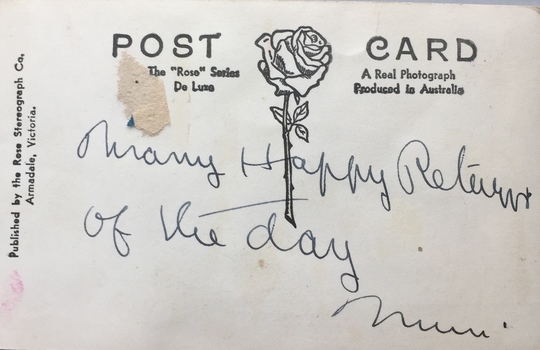 POST CARD
The "Rose" Series
De Luxe
A Real Photograph
Produced in Australia
Published by the Rose Stereograph Co.
Armadale, Victoria.
Many Happy Returns
of the day